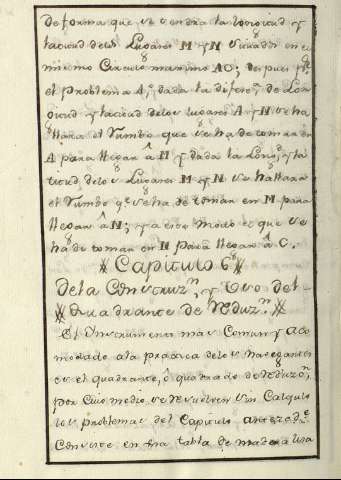 de forma que se tendra la Longitud y
latitud delos Lugares M y N situados en el
mismo Circulo maximo AC; despues p.r
el problema 4.º, dada la diferen.a de Lon
gitud y latitud delos lugares A y M se ha
llara el Rumbo que se ha de tomar en
A para llegar â M y dada la Long.d y la
titud, delos Lugares M y N se hallara
el Rumbo q.e se ha de tomar en M para
llegar â N; y a este modo el que se
ha de tomar en N para llegar â C.
Capitulo 6.º
Dela Construz.n, y Uso del
Quadrante de Reduz.n
El Instrumento mas Comun y Aco
modado ala practica delos Navegantes
es el quadrante, ô quadrado de reduzi.n,
por Cuio medio se resuelven sin Calculo
los problemas del Capitulo antezed.e
Consiste en una tabla de madera lisa